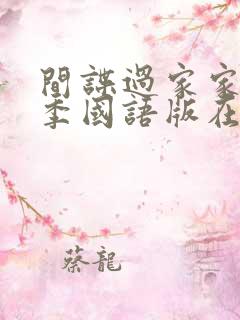 間諜過家家
季國語版在
蔡龍